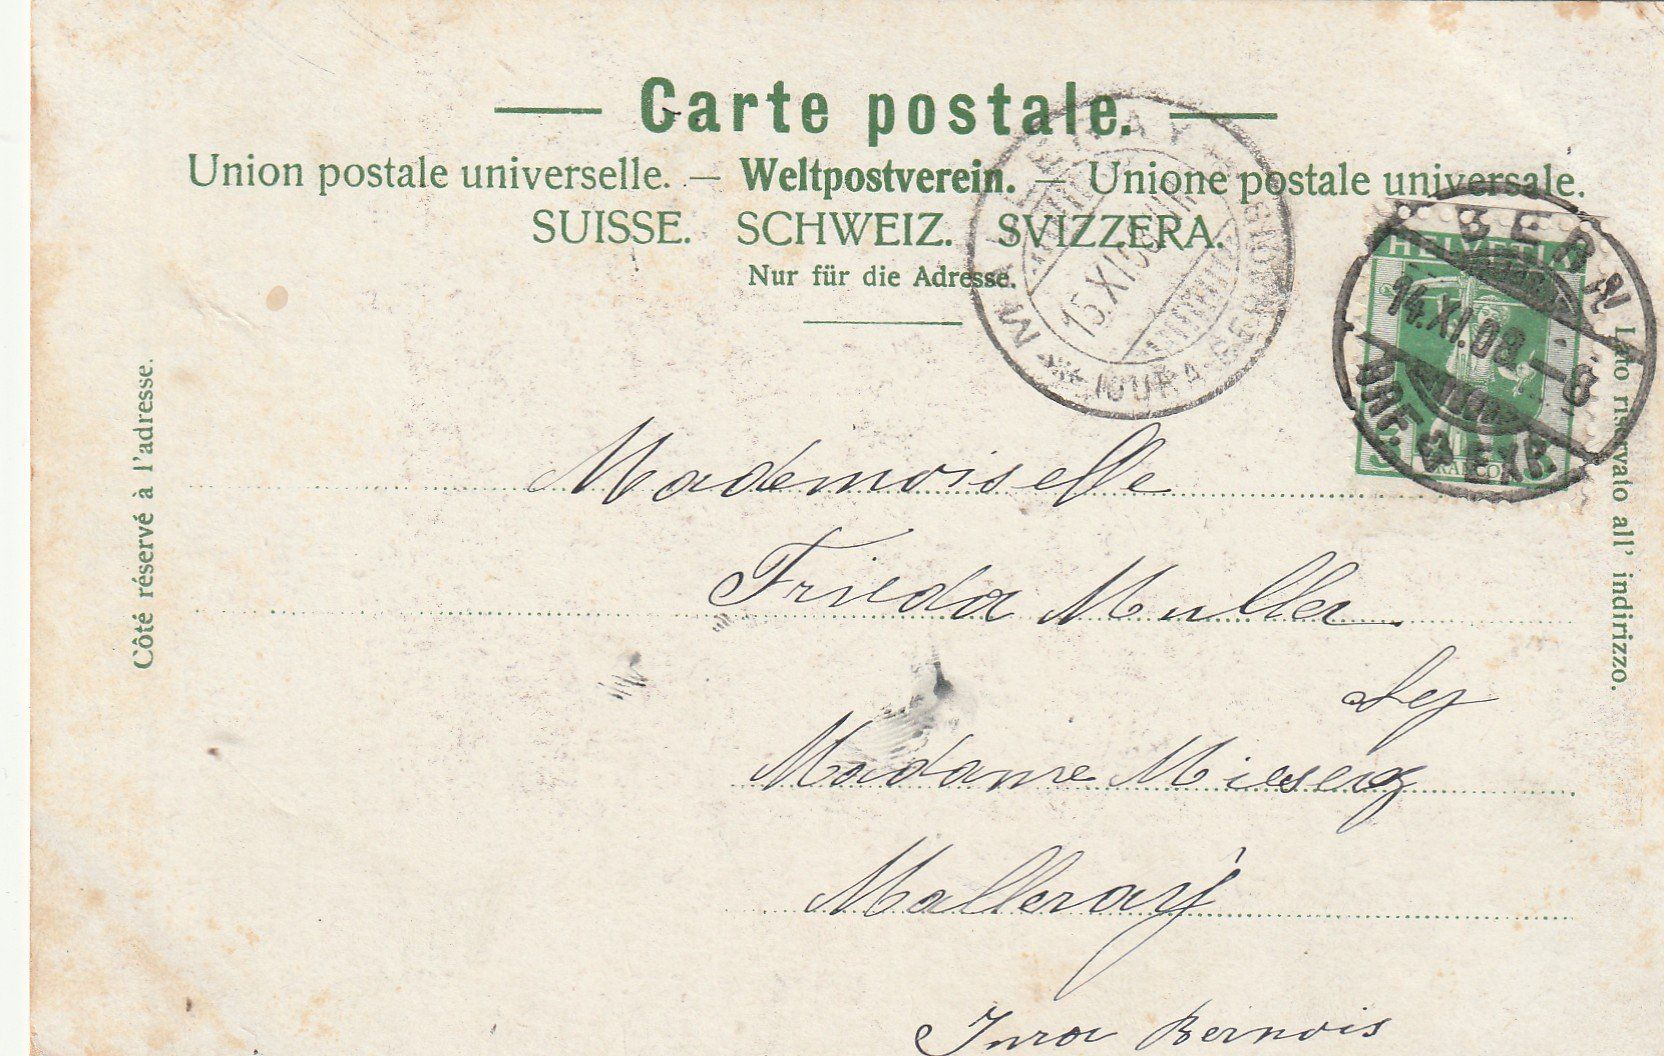 Carte postale.
Union postale universelle. — Weltpostverein. — Unione postale universale.
SUISSE. SCHWEIZ. SVIZZERA.
Nur für die Adresse.
MALLERAY
15.XI.08
(JURA-BERNOIS)
HELVETIA
FRANCO
BERN
14.XI.08.–8
BRF. EXP.
Côté réservé à l'adresse.
Lato riservato all' indirizzo.
Mademoiselle
Frieda Muller
Madame
Malleray
Jura Bernois